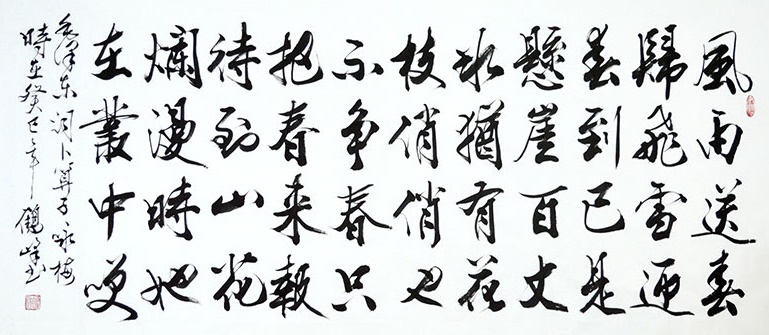 風雨送春
歸飛雪迎
春到已是
懸崖百丈
冰猶有花
枝俏俏也
不争春只
把春来報
待到山花
爛漫時她
在叢中咲
毛泽东词卜算子咏梅
時在癸巳年鶴峰书